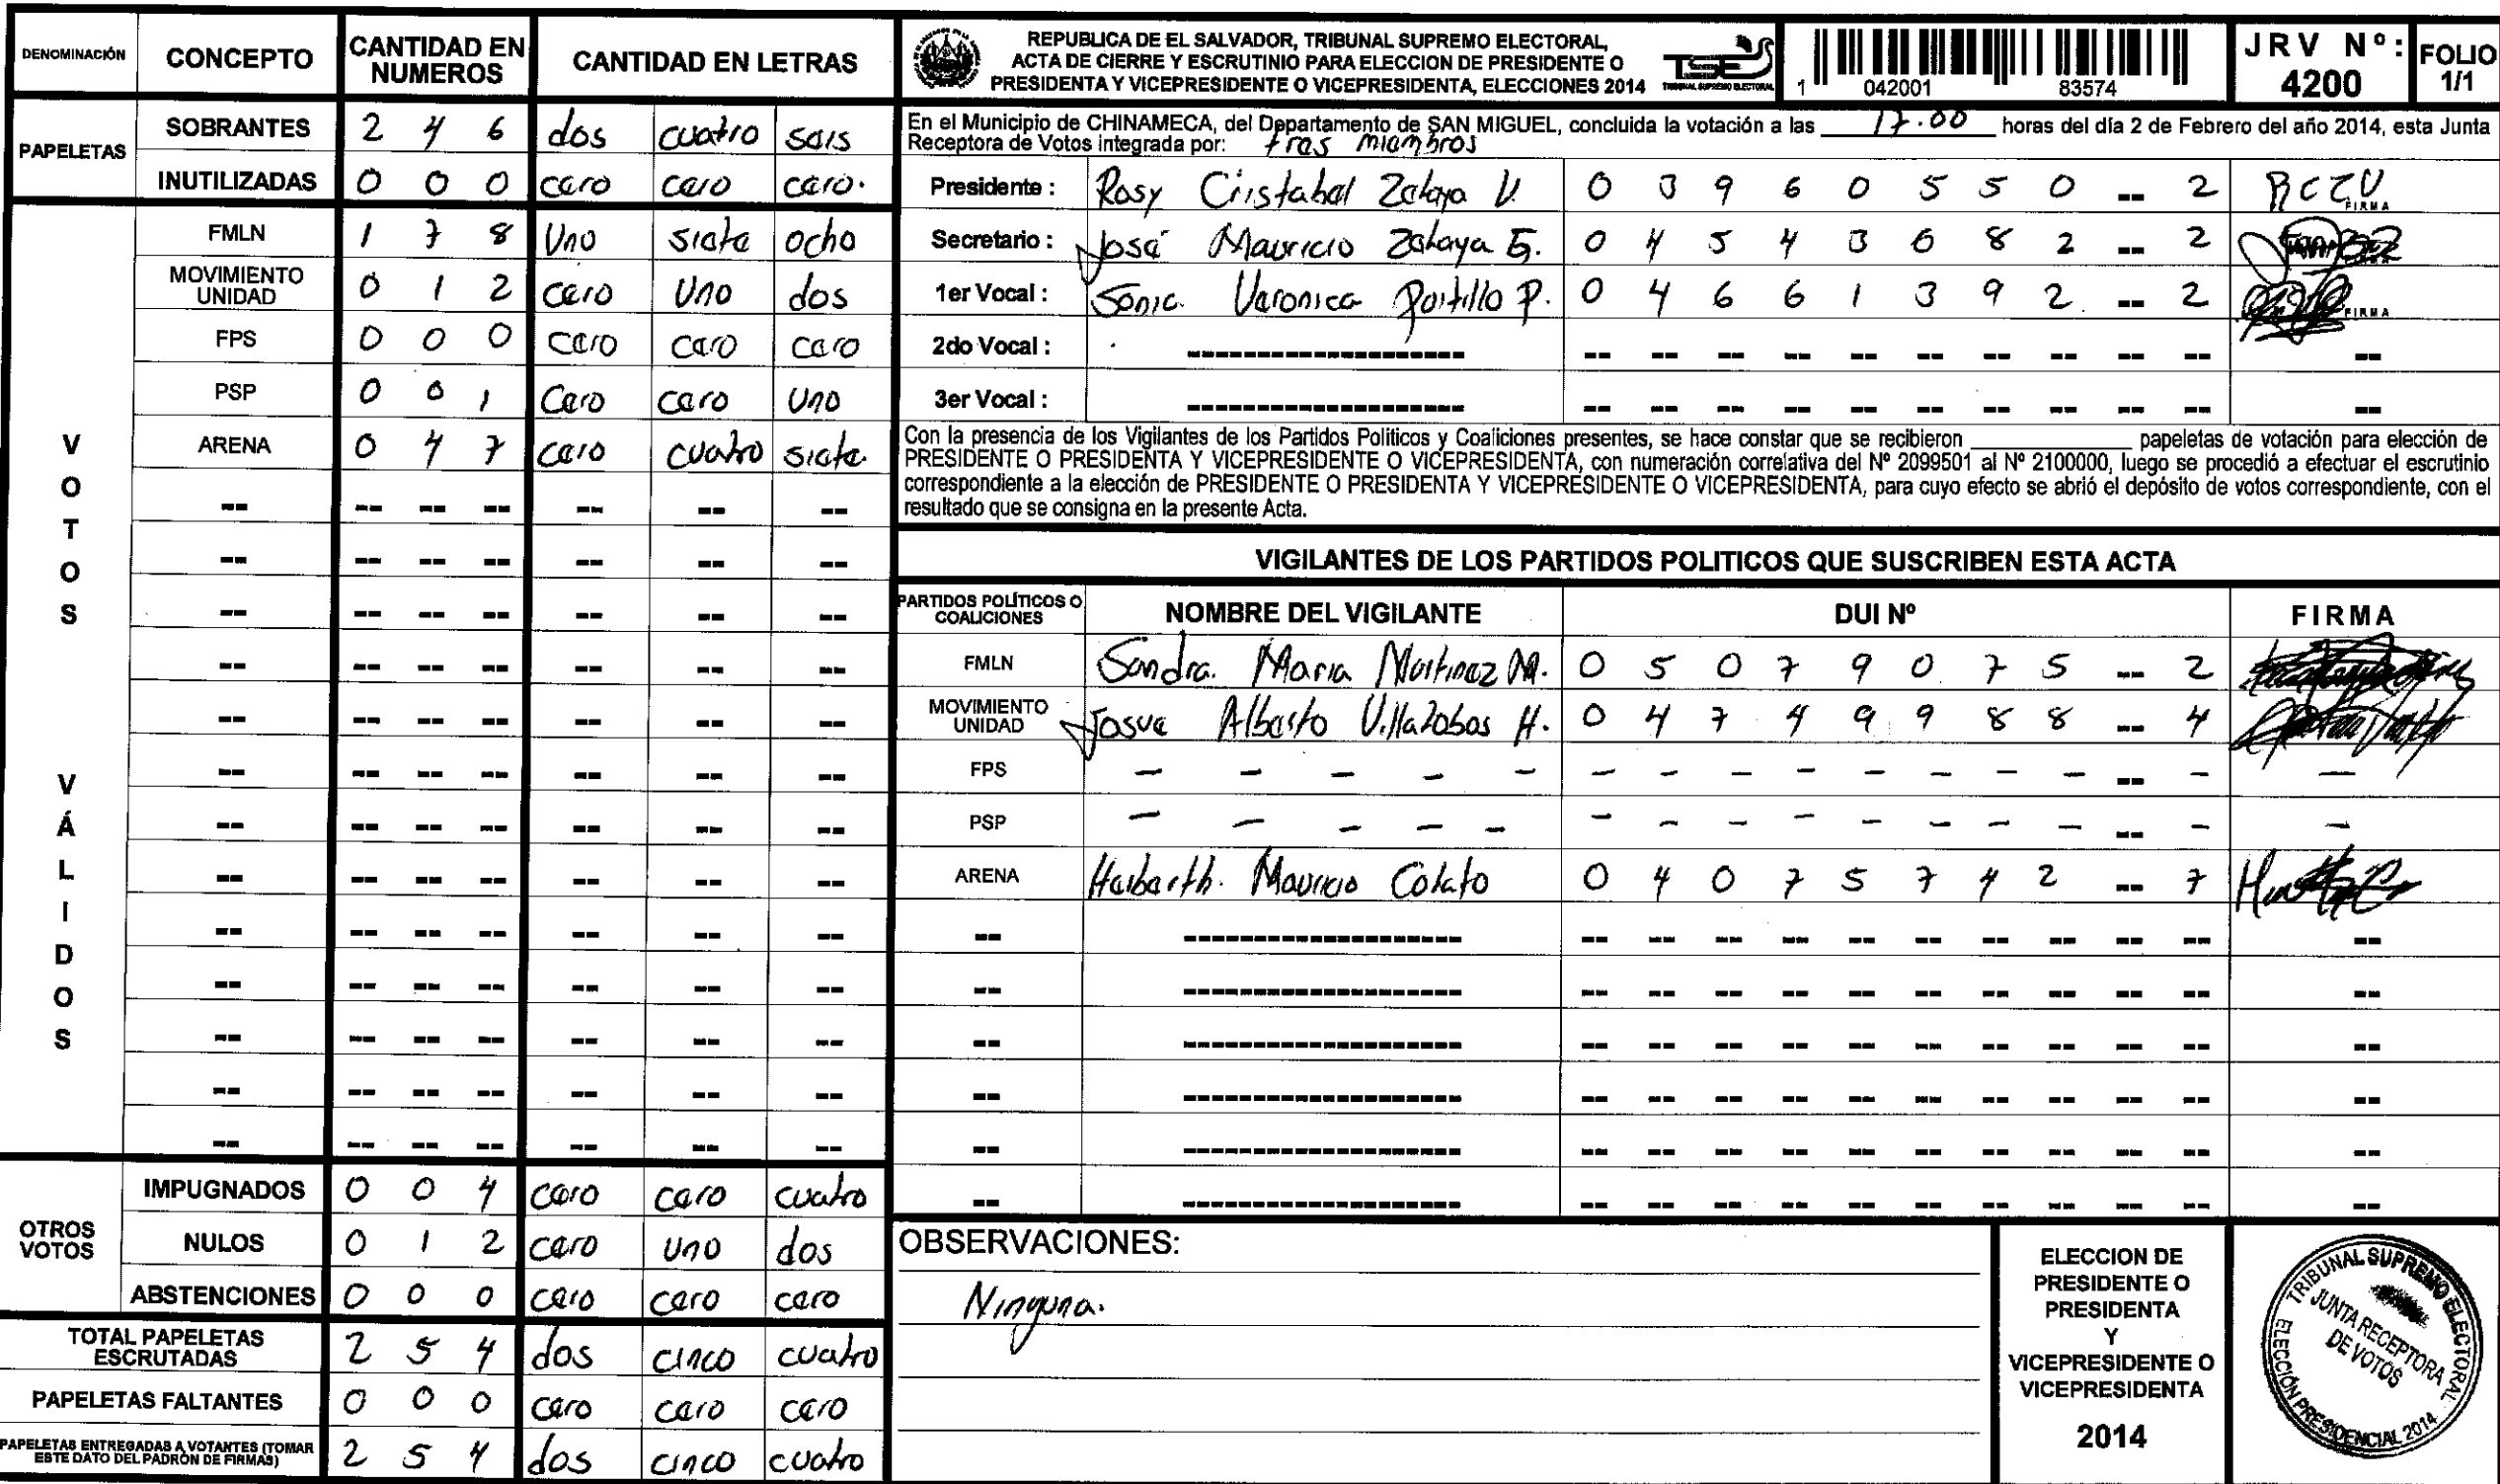 DENOMINACIÓN CONCEPTO CANTIDAD EN NUMEROS CANTIDAD EN LETRAS
PAPELETAS
SOBRANTES 2 4 6 dos cuatro seis
INUTILIZADAS 0 0 0 cero cero cero.
VOTOS VÁLIDOS
FMLN 1 7 8 Uno siete ocho
MOVIMIENTO UNIDAD 0 1 2 cero Uno dos
FPS 0 0 0 cero cero cero
PSP 0 0 1 Cero cero Uno
ARENA 0 4 7 cero cuatro siete
-- -- -- -- -- -- --
-- -- -- -- -- -- --
-- -- -- -- -- -- --
-- -- -- -- -- -- --
-- -- -- -- -- -- --
-- -- -- -- -- -- --
-- -- -- -- -- -- --
-- -- -- -- -- -- --
-- -- -- -- -- -- --
-- -- -- -- -- -- --
-- -- -- -- -- -- --
-- -- -- -- -- -- --
-- -- -- -- -- -- --
OTROS VOTOS
IMPUGNADOS 0 0 4 cero cero cuatro
NULOS 0 1 2 cero uno dos
ABSTENCIONES 0 0 0 cero cero cero
TOTAL PAPELETAS ESCRUTADAS 2 5 4 dos cinco cuatro
PAPELETAS FALTANTES 0 0 0 cero cero cero
PAPELETAS ENTREGADAS A VOTANTES (TOMAR ESTE DATO DEL PADRÓN DE FIRMAS) 2 5 4 dos cinco cuatro
REPUBLICA DE EL SALVADOR, TRIBUNAL SUPREMO ELECTORAL,
ACTA DE CIERRE Y ESCRUTINIO PARA ELECCION DE PRESIDENTE O
PRESIDENTA Y VICEPRESIDENTE O VICEPRESIDENTA, ELECCIONES 2014
TSE
TRIBUNAL SUPREMO ELECTORAL
1 042001 83574
JRV Nº: 4200
FOLIO 1/1
En el Municipio de CHINAMECA, del Departamento de SAN MIGUEL, concluida la votación a las 17.00 horas del día 2 de Febrero del año 2014, esta Junta
Receptora de Votos integrada por: tres miembros
Presidente : Rosy Cristabel Zelaya V. 0 3 9 6 0 5 5 0 -- 2 RCZV FIRMA
Secretario : José Mauricio Zelaya G. 0 4 5 4 3 6 8 2 -- 2
1er Vocal : Sonia Veronica Portillo P. 0 4 6 6 1 3 9 2 -- 2 FIRMA
2do Vocal : -------------------- -- -- -- -- -- -- -- -- -- -- --
3er Vocal : -------------------- -- -- -- -- -- -- -- -- -- -- --
Con la presencia de los Vigilantes de los Partidos Politicos y Coaliciones presentes, se hace constar que se recibieron ________ papeletas de votación para elección de
PRESIDENTE O PRESIDENTA Y VICEPRESIDENTE O VICEPRESIDENTA, con numeración correlativa del Nº 2099501 al Nº 2100000, luego se procedió a efectuar el escrutinio
correspondiente a la elección de PRESIDENTE O PRESIDENTA Y VICEPRESIDENTE O VICEPRESIDENTA, para cuyo efecto se abrió el depósito de votos correspondiente, con el
resultado que se consigna en la presente Acta.
VIGILANTES DE LOS PARTIDOS POLITICOS QUE SUSCRIBEN ESTA ACTA
PARTIDOS POLÍTICOS O COALICIONES NOMBRE DEL VIGILANTE DUI Nº FIRMA
FMLN Sandra Maria Martinez M. 0 5 0 7 9 0 7 5 -- 2
MOVIMIENTO UNIDAD Josue Alberto Villalobos H. 0 4 7 4 9 9 8 8 -- 4
FPS - - - - - - - - - - - - - -- - -
PSP - - - - - - - - - - - - - -- - -
ARENA Herberth. Mauricio Colato 0 4 0 7 5 7 4 2 -- 7
-- -------------------- -- -- -- -- -- -- -- -- -- -- --
-- -------------------- -- -- -- -- -- -- -- -- -- -- --
-- -------------------- -- -- -- -- -- -- -- -- -- -- --
-- -------------------- -- -- -- -- -- -- -- -- -- -- --
-- -------------------- -- -- -- -- -- -- -- -- -- -- --
-- -------------------- -- -- -- -- -- -- -- -- -- -- --
OBSERVACIONES:
Ninguna.
ELECCION DE
PRESIDENTE O
PRESIDENTA
Y
VICEPRESIDENTE O
VICEPRESIDENTA
2014
TRIBUNAL SUPREMO ELECTORAL
JUNTA RECEPTORA
DE VOTOS
ELECCIÓN PRESIDENCIAL 2014